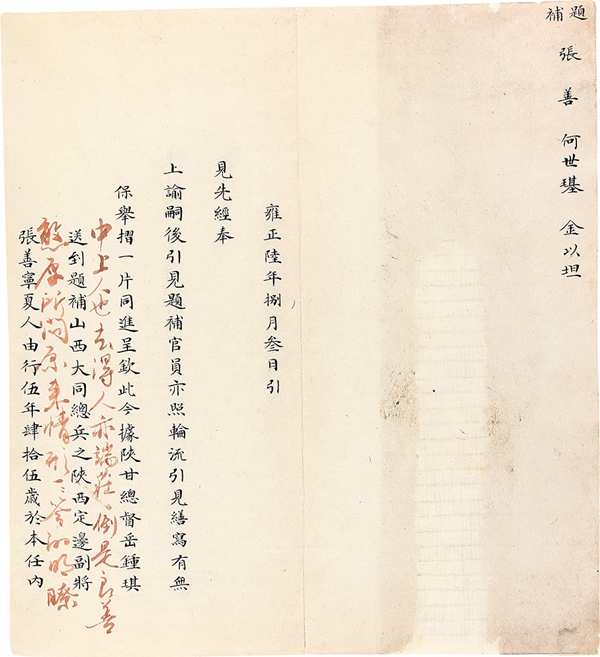 題補
張善 何世璂 金以坦
雍正陸年捌月叁日引
見先經奉
上諭嗣後引見題補官員亦照輪流引見繕寫有無
保舉摺一片同進呈欽此今據陝甘總督岳鍾琪
中上人也去得人亦端莊倒是良善
送到題補山西大同總兵之陝西定邊副將
厚所問原來情形一一答的明瞭
張善寧夏人由行伍年肆拾伍歲於本任內